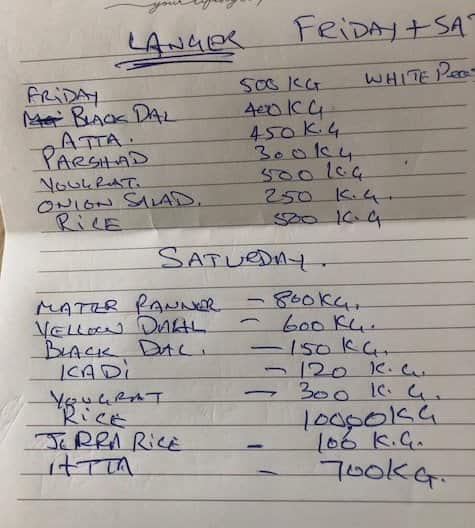 LANGER FRIDAY + SA
FRIDAY 500 KG WHITE
BLACK DAL 400 KG
ATTA. 450 K.G
PARSHAD 300 KG
YOUGRAT. 500 K.G
ONION SALAD. 250 K.G.
RICE 500 K.G
SATURDAY.
MATTER PANNER - 800KG.
YELLOW DAHL - 600 KG.
BLACK DAL. - 150 KG.
KADI - 120 K.G.
YOUGRAT - 300 K.G.
RICE KG
JERRA RICE - 100 K.G.
ATTA - 700KG.